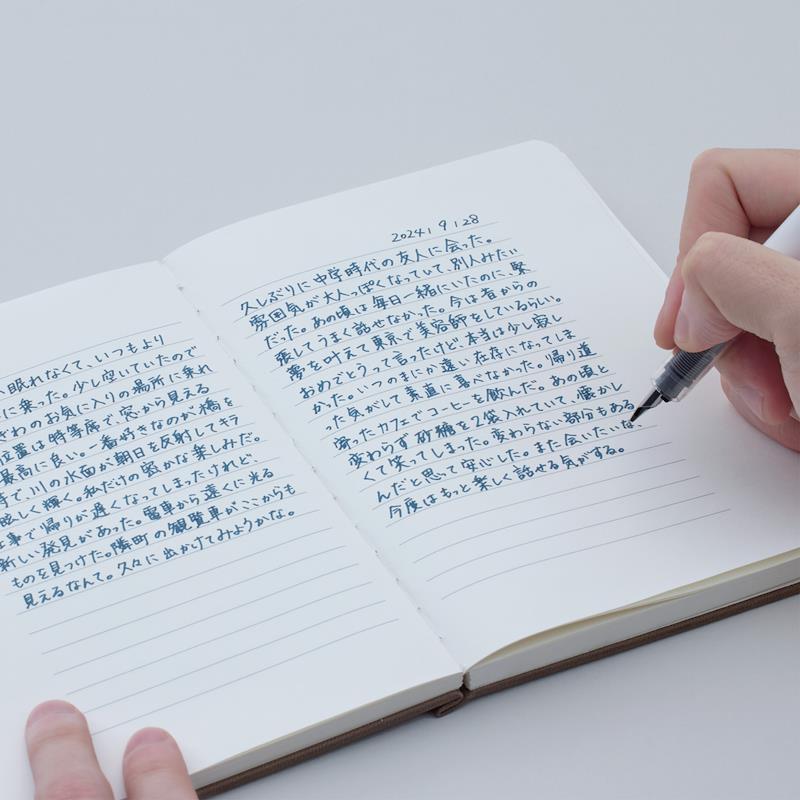 眠れなくて、いつもより
に乗った。少し空いていたので
さわのお気に入りの場所に乗れ
位置は特等席で、窓から見える
最高に良い。一番好きなのが橋を
時で、川の水面が朝日を反射してキラ
眩しく輝く。私だけの密かな楽しみだ。
仕事で帰りが遅くなってしまったけれど、
新しい発見があった。電車から遠くに光る
ものを見つけた。隣町の観覧車がここからも
見えるなんて。久々に出かけてみようかな。
2024 | 9 | 28
久しぶりに中学時代の友人に会った。
雰囲気が大人っぽくなっていて、別人みたい
だった。あの頃は毎日一緒にいたのに、緊
張してうまく話せなかった。今は昔からの
夢を叶えて東京で美容師をしているらしい。
おめでとうって言ったけど本当は少し寂し
かった。いつのまにか遠い存在になってしま
った気がして素直に喜べなかった。帰り道
寄ったカフェでコーヒーを飲んだ。あの頃と
変わらず砂糖を2袋入れていて、懐かし
くて笑ってしまった。変わらない部分もある
んだと思って安心した。また会いたいな、
今度はもっと楽しく話せる気がする。